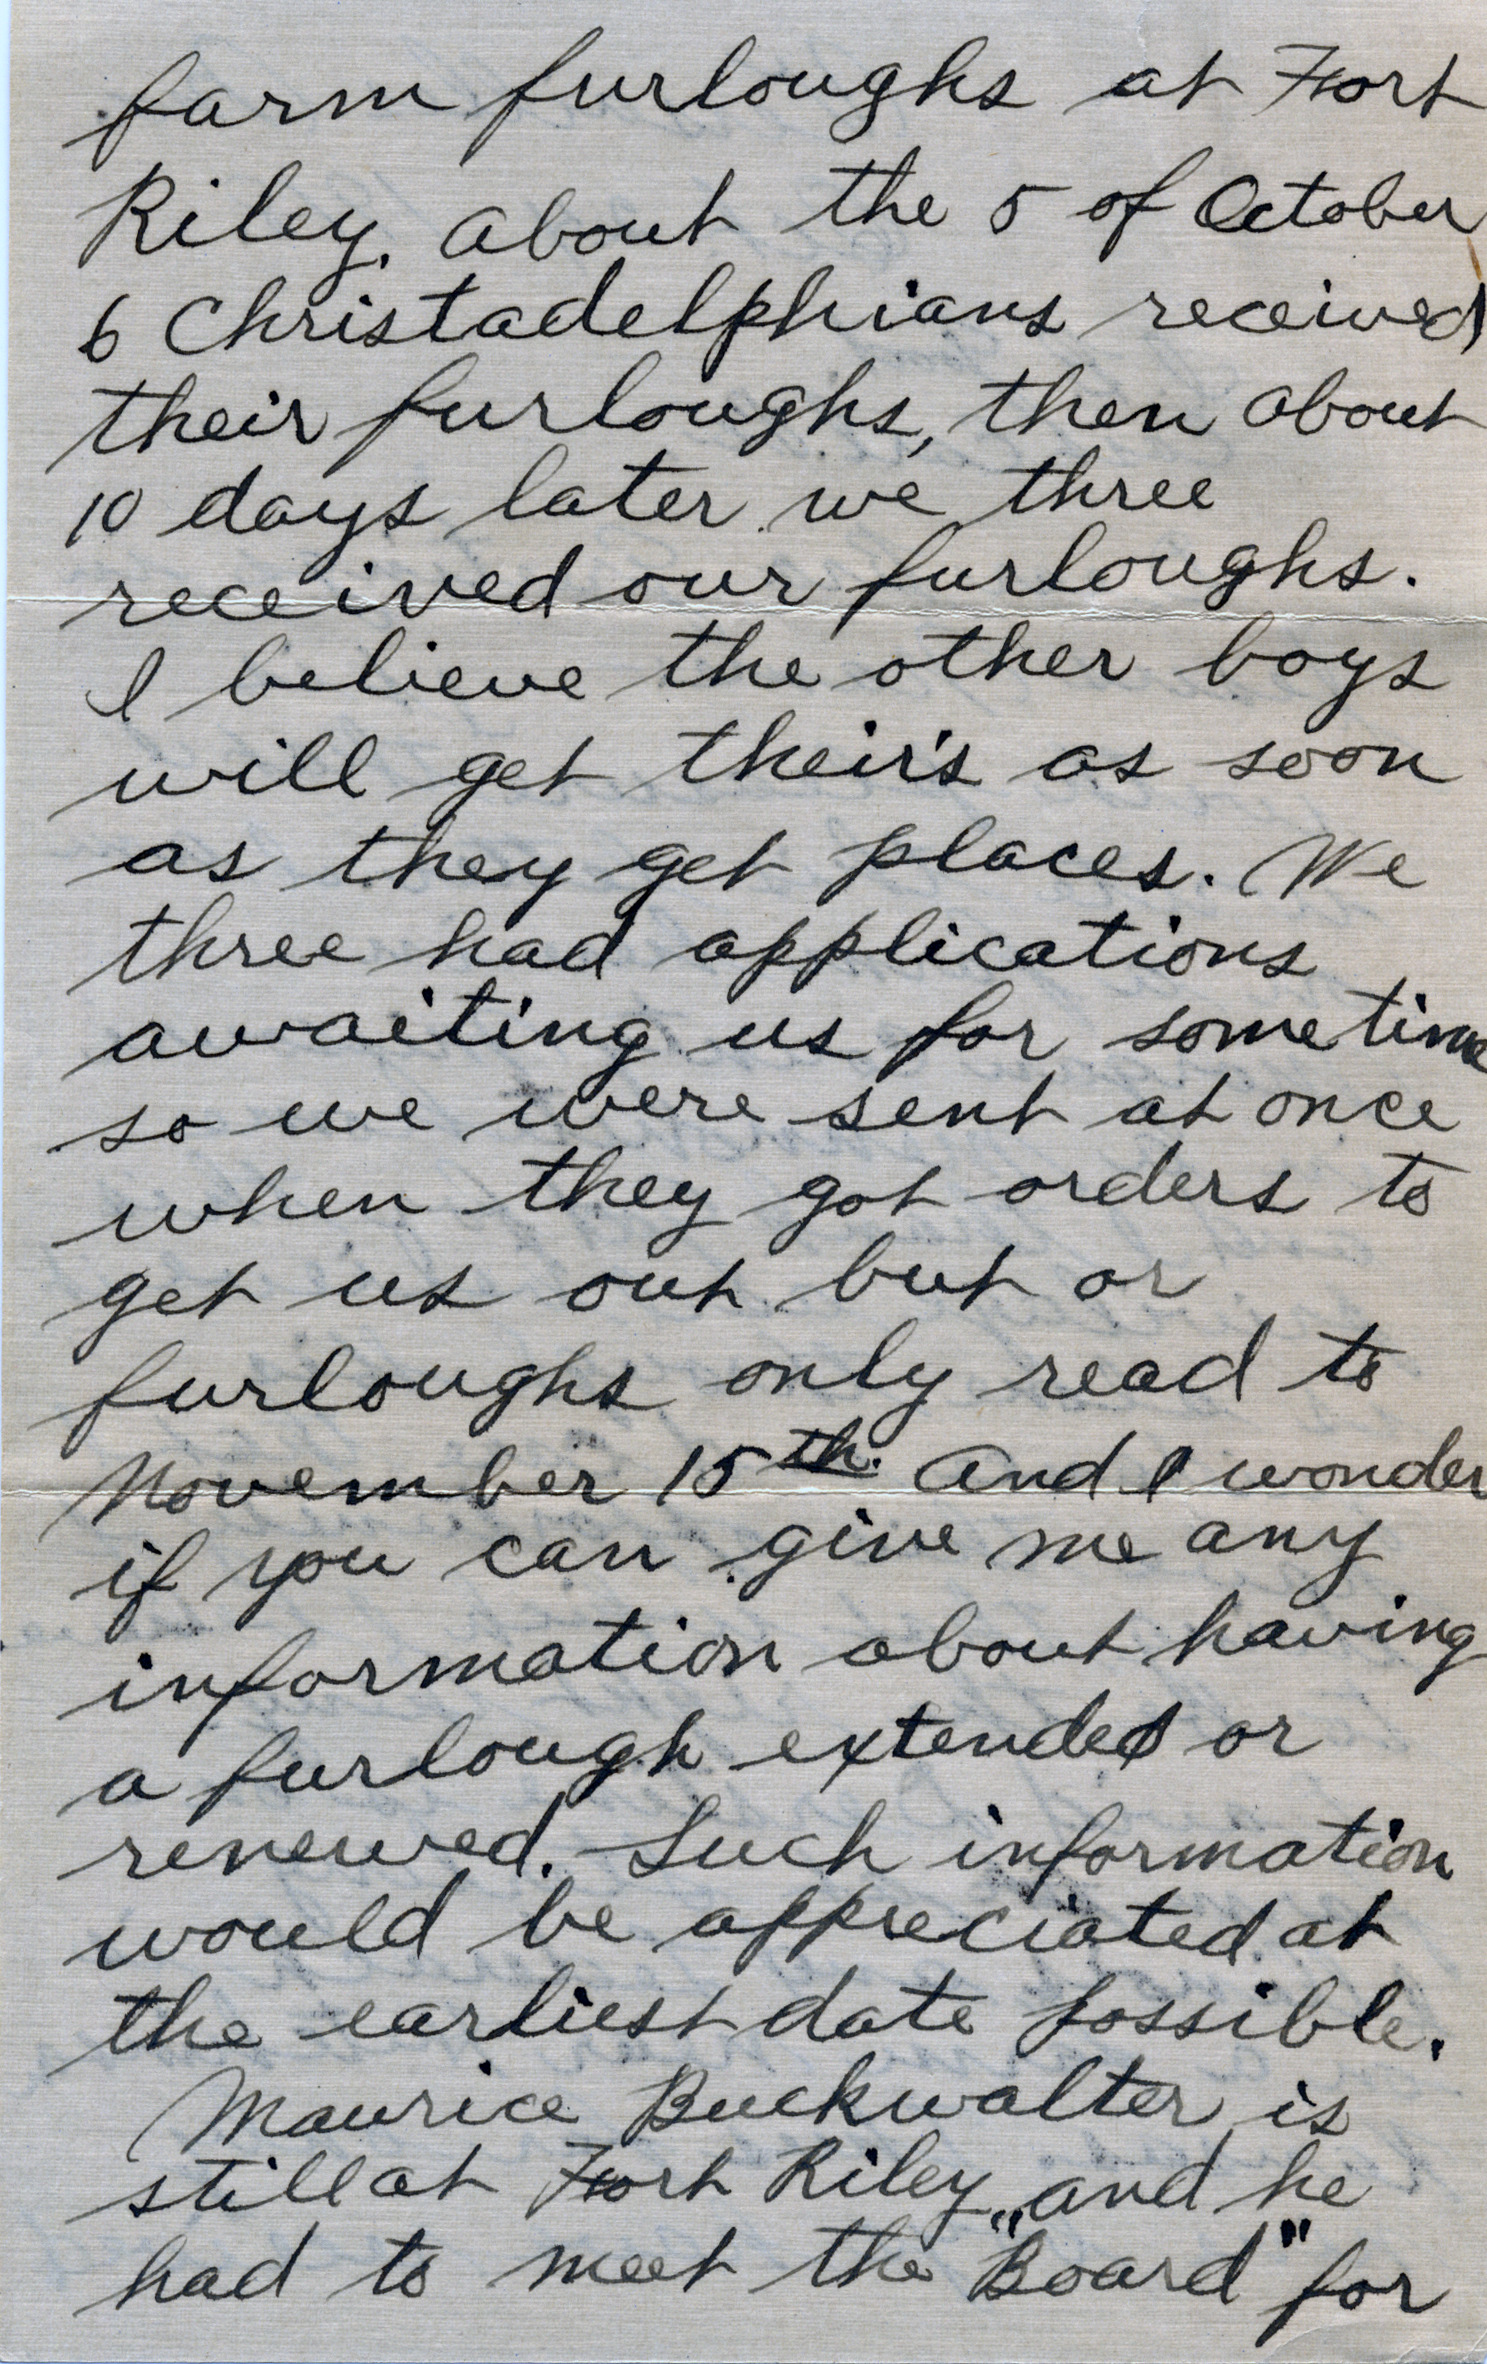 farm furloughs at Fort
Riley. About the 5 of October
6 Christadelphians received
their furloughs, then about
10 days later we three
received our furloughs.
I believe the other boys
will get their's as soon
as they get places. We
three had applications
awaiting us for sometime
so we were sent at once
when they got orders to
get us out but or
furloughs only read to
November 15th. And I wonder
if you can give me any
information about having
a furlough extended or
renewed. Such information
would be appreciated at
the earliest date possible.
Maurice Buckwalter is
still at Fort Riley, and he
had to meet the "Board" for